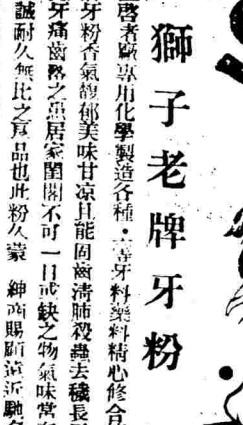 獅子老牌牙粉
啓者廠專用化學製造各種・六寺牙料藥料精心修合
牙粉香氣馥郁美味甘凉且能固齒淸肺殺蟲去穢長
牙痛齒潞之惡居家閨閣不可一日或缺之物氣味常
誠耐久無比之眞品也此粉久蒙 紳商賜顧遠近馳